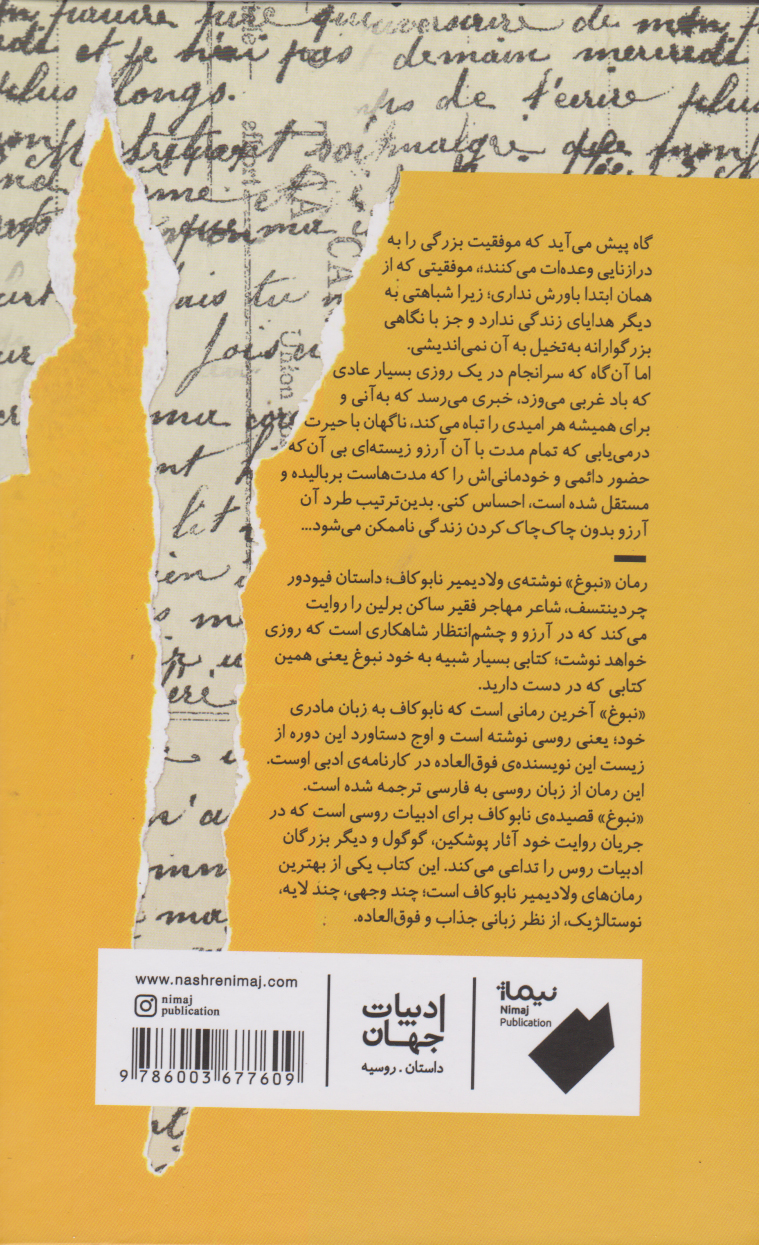 plus longs.
demain mercredi
گاه پیش می‌آید که موفقیت بزرگی را به
درازنایی وعده‌ات می‌کنند؛، موفقیتی که از
همان ابتدا باورش نداری؛ زیرا شباهتی به
دیگر هدایای زندگی ندارد و جز با نگاهی
بزرگوارانه به‌تخیل به آن نمی‌اندیشی.
اما آن‌گاه که سرانجام در یک روزی بسیار عادی
که باد غربی می‌وزد، خبری می‌رسد که به‌آنی و
برای همیشه هر امیدی را تباه می‌کند، ناگهان با حیرت
درمی‌یابی که تمام مدت با آن آرزو زیسته‌ای بی آن‌که
حضور دائمی و خودمانی‌اش را که مدت‌هاست بربالیده و
مستقل شده است، احساس کنی. بدین‌ترتیب طرد آن
آرزو بدون چاک‌چاک کردن زندگی ناممکن می‌شود...
رمان «نبوغ» نوشته‌ی ولادیمیر نابوکاف؛ داستان فیودور
چردینتسف، شاعر مهاجر فقیر ساکن برلین را روایت
می‌کند که در آرزو و چشم‌انتظار شاهکاری است که روزی
خواهد نوشت؛ کتابی بسیار شبیه به خود نبوغ یعنی همین
کتابی که در دست دارید.
«نبوغ» آخرین رمانی است که نابوکاف به زبان مادری
خود؛ یعنی روسی نوشته است و اوج دستاورد این دوره از
زیست این نویسنده‌ی فوق‌العاده در کارنامه‌ی ادبی اوست.
این رمان از زبان روسی به فارسی ترجمه شده است.
«نبوغ» قصیده‌ی نابوکاف برای ادبیات روسی است که در
جریان روایت خود آثار پوشکین، گوگول و دیگر بزرگان
ادبیات روس را تداعی می‌کند. این کتاب یکی از بهترین
رمان‌های ولادیمیر نابوکاف است؛ چند وجهی، چند لایه،
نوستالژیک، از نظر زبانی جذاب و فوق‌العاده.
نیماژ
Nimaj
Publication
ادبیات
جهان
داستان . روسیه
www.nashrenimaj.com
nimaj
publication
9 786003 677609